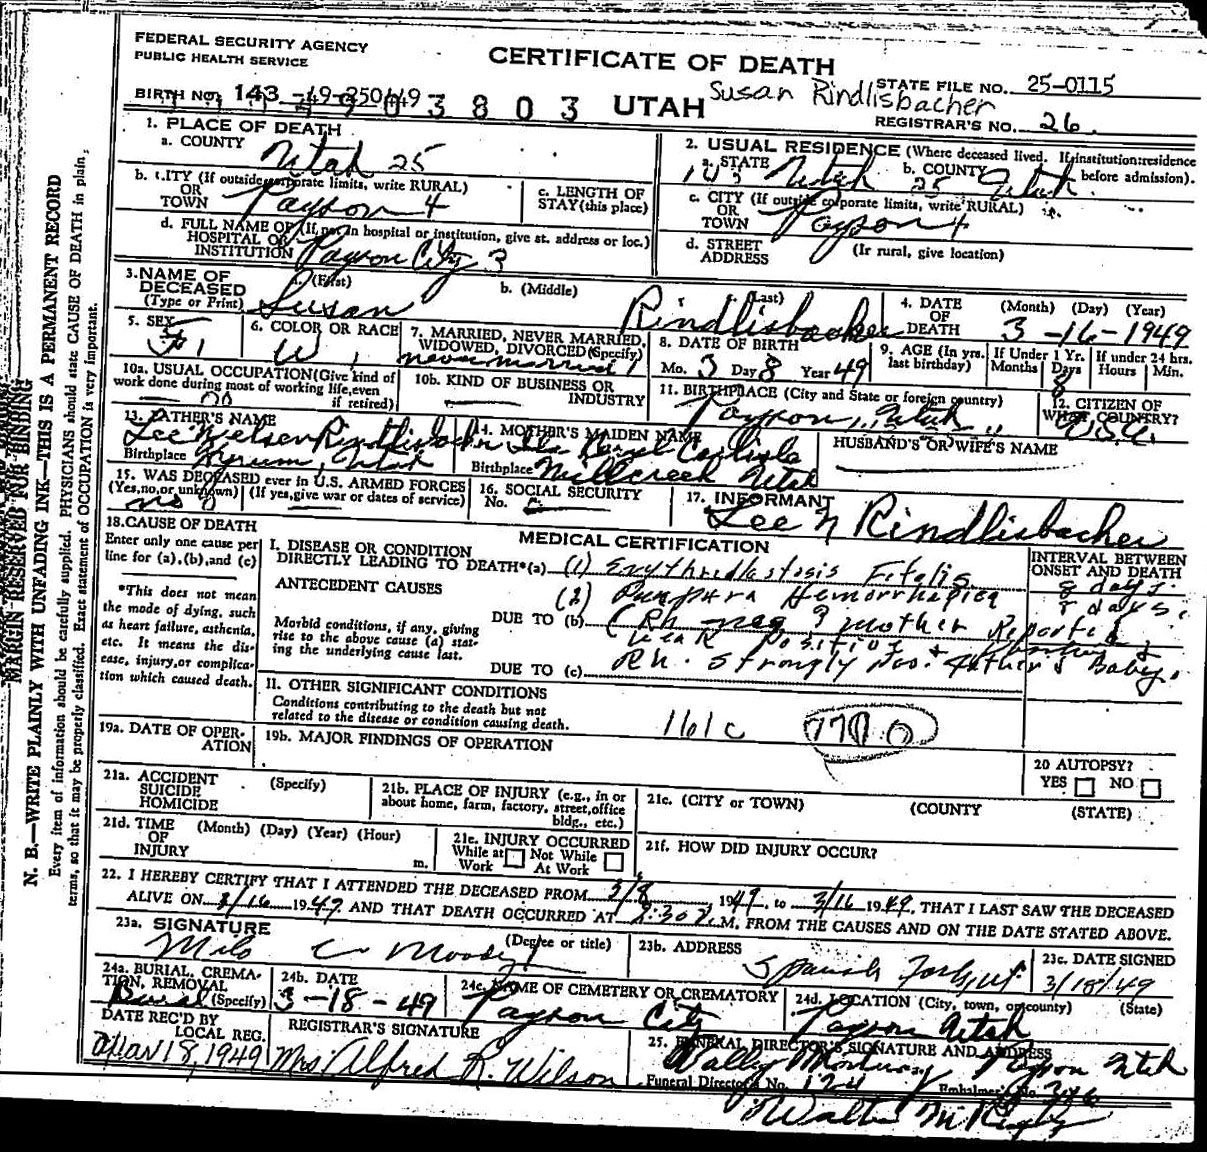 FEDERAL SECURITY AGENCY
PUBLIC HEALTH SERVICE
CERTIFICATE OF DEATH
STATE FILE NO. 25-0115
BIRTH NO. 143-49-250449
3803 UTAH
Susan Rindlisbacher
REGISTRAR'S NO. 26
1. PLACE OF DEATH
a. COUNTY Utah 25
2. USUAL RESIDENCE (Where deceased lived. If institution: residence before admission).
a. STATE Utah b. COUNTY 25 Utah
b. CITY (If outside corporate limits, write RURAL) OR TOWN Payson 4
c. LENGTH OF STAY (this place)
c. CITY (If outside corporate limits, write RURAL) OR TOWN Payson 4
d. FULL NAME OF (If not in hospital or institution, give st. address or loc.) HOSPITAL OR INSTITUTION Payson City 3
d. STREET ADDRESS (If rural, give location)
3. NAME OF DECEASED (Type or Print)
a. (First) Susan
b. (Middle)
c. (Last) Rindlisbacher
4. DATE OF DEATH (Month) (Day) (Year) 3-16-1949
5. SEX F 1
6. COLOR OR RACE W 1
7. MARRIED, NEVER MARRIED, WIDOWED, DIVORCED (Specify) never married 1
8. DATE OF BIRTH Mo. 3 Day 8 Year 49
9. AGE (In yrs. last birthday)
If Under 1 Yr. Months Days 8
If under 24 hrs. Hours Min.
10a. USUAL OCCUPATION (Give kind of work done during most of working life, even if retired)
10b. KIND OF BUSINESS OR INDUSTRY
11. BIRTHPLACE (City and State or foreign country) Payson, Utah
12. CITIZEN OF WHAT COUNTRY? U.S.A.
13. FATHER'S NAME Lee Nielsen Rindlisbacher
Birthplace Hyrum, Utah
14. MOTHER'S MAIDEN NAME Carlisle
Birthplace Millcreek Utah
HUSBAND'S OR WIFE'S NAME
15. WAS DECEASED ever in U.S. ARMED FORCES
(Yes, no, or unknown) (If yes, give war or dates of service)
no
16. SOCIAL SECURITY No.
17. INFORMANT
Lee N Rindlisbacher
18. CAUSE OF DEATH
Enter only one cause per line for (a), (b), and (c)
*This does not mean the mode of dying, such as heart failure, asthenia, etc. It means the disease, injury, or complication which caused death.
MEDICAL CERTIFICATION
INTERVAL BETWEEN ONSET AND DEATH
I. DISEASE OR CONDITION DIRECTLY LEADING TO DEATH*(a) (1) Erythroblastosis Fetalis 8 days.
ANTECEDENT CAUSES (2) Purpura Hemorrhagica 8 days.
Morbid conditions, if any, giving rise to the above cause (a) stating the underlying cause last.
DUE TO (b) (Rh neg ? mother Reported
weak Positive
DUE TO (c) Rh. Strongly Pos. Father & Baby.
II. OTHER SIGNIFICANT CONDITIONS
Conditions contributing to the death but not related to the disease or condition causing death.
161c 770 0
19a. DATE OF OPERATION
19b. MAJOR FINDINGS OF OPERATION
20 AUTOPSY? YES NO
21a. ACCIDENT SUICIDE HOMICIDE (Specify)
21b. PLACE OF INJURY (e.g., in or about home, farm, factory, street, office bldg., etc.)
21c. (CITY or TOWN) (COUNTY) (STATE)
21d. TIME OF INJURY (Month) (Day) (Year) (Hour) m.
21e. INJURY OCCURRED While at Work Not While At Work
21f. HOW DID INJURY OCCUR?
22. I HEREBY CERTIFY THAT I ATTENDED THE DECEASED FROM 3/8, 1949, to 3/16 1949, THAT I LAST SAW THE DECEASED
ALIVE ON 3/16 1949 AND THAT DEATH OCCURRED AT 8:30 M. FROM THE CAUSES AND ON THE DATE STATED ABOVE.
23a. SIGNATURE (Degree or title)
Milo C Moody
23b. ADDRESS
Spanish Fork, Ut
23c. DATE SIGNED
3/18/49
24a. BURIAL, CREMATION, REMOVAL (Specify) Burial
24b. DATE 3-18-49
24c. NAME OF CEMETERY OR CREMATORY Payson City
24d. LOCATION (City, town, or county) (State) Payson Utah
DATE REC'D BY LOCAL REG. Mar 18, 1949
REGISTRAR'S SIGNATURE Mrs. Alfred R. Wilson
25. FUNERAL DIRECTOR'S SIGNATURE AND ADDRESS
Valley Mortuary Payson Utah
Funeral Director's No. 124 Embalmer's No. 376
N. B.—WRITE PLAINLY WITH UNFADING INK—THIS IS A PERMANENT RECORD
MARGIN RESERVED FOR BINDING
Every item of information should be carefully supplied. PHYSICIANS should state CAUSE OF DEATH in plain
terms, so that it may be properly classified. Exact statement of OCCUPATION is very important.